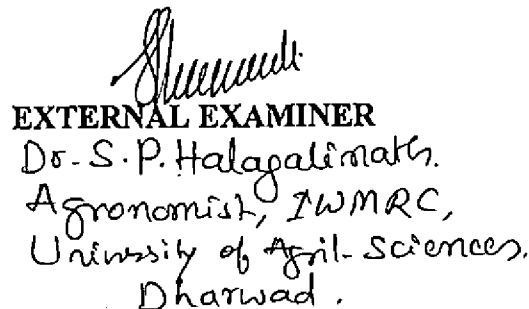 EXTERNAL EXAMINER
Dr. S.P. Halagalimath.
Agronomist, IWMRC,
University of Agril. Sciences.
Dharwad.